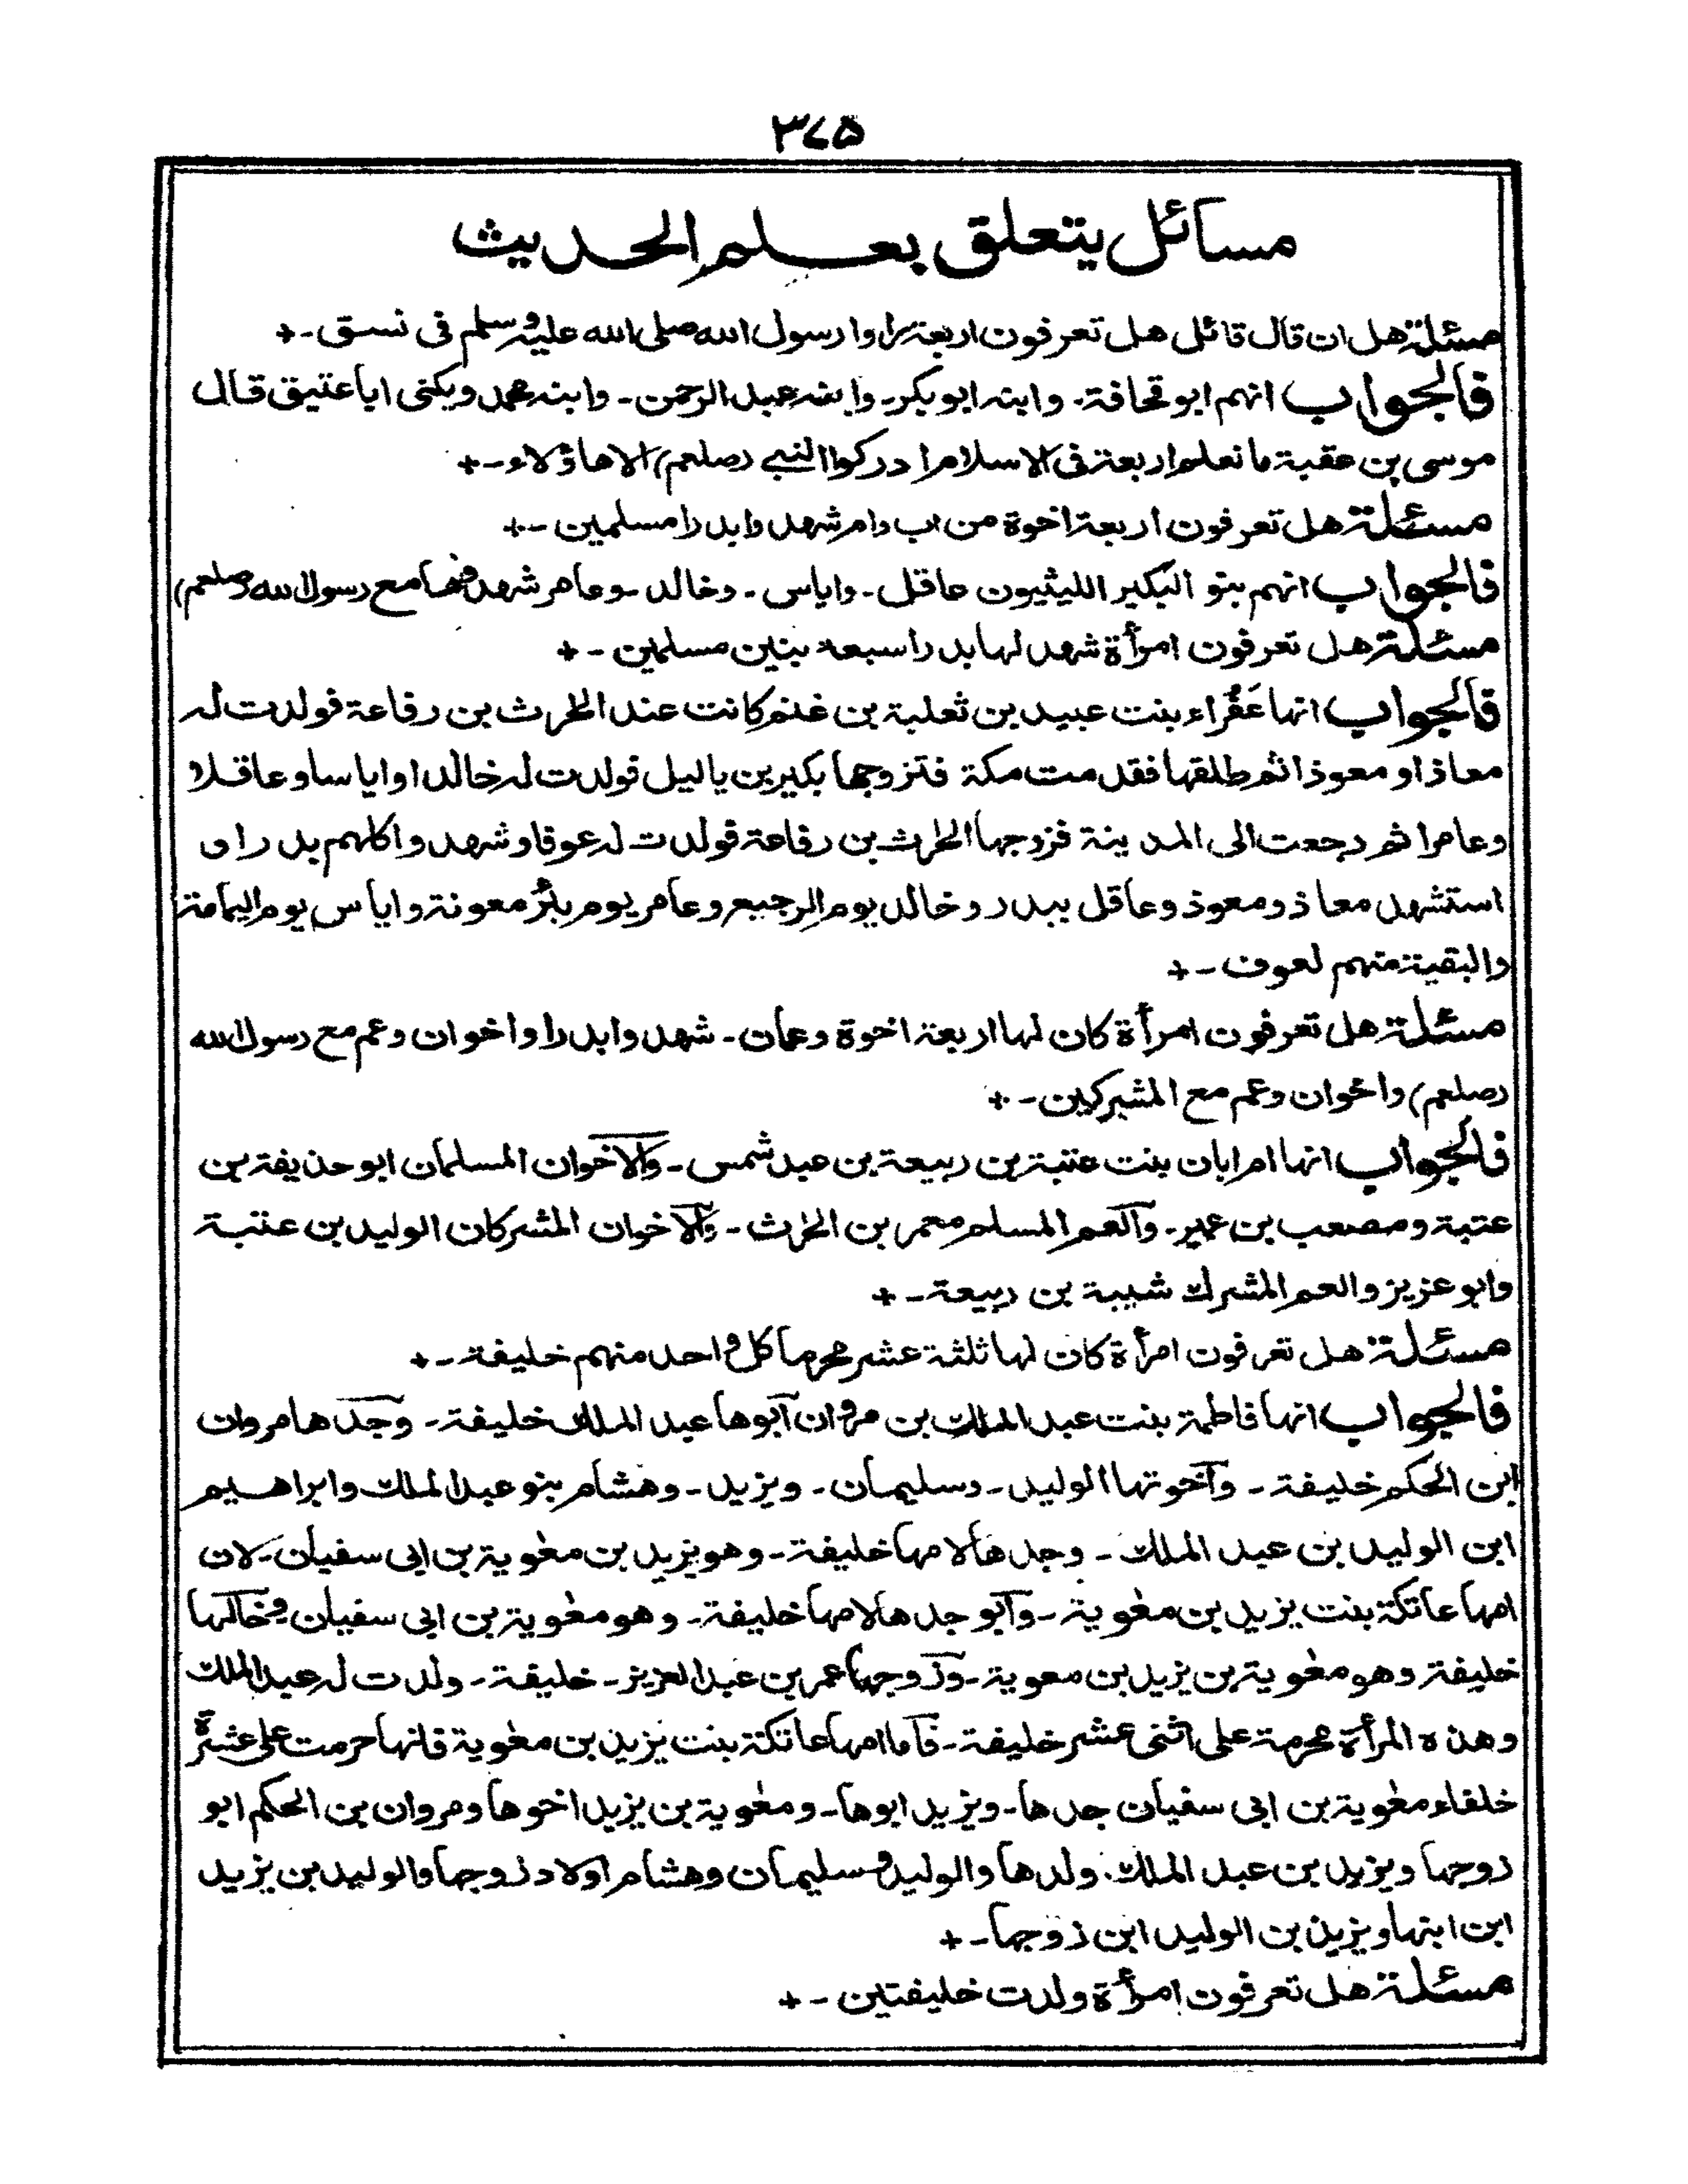 ٣٧٥
مسائل يتعلق بعلم الحديث
مسئلة هل ان قال قائل هل تعرفون اربعة راوا رسول الله صلى الله عليه وسلم فى نسق -+
فالجواب انهم ابو قحافة. وابنه ابو بكر- وابنه عبد الرحمن- وابنه محمد ويكنى ابا عتيق قال
موسى بن عقبة ما نعلم اربعة فى الاسلام ادركوا النبى (صلعم) الا هاؤلاء-+
مسئلة هل تعرفون اربعة اخوة من اب وام شهدوا بدرا مسلمين -+
فالجواب انهم بنو البكير الليثيون عاقل- واياس- وخالد- وعامر شهدوها مع رسول الله (صلعم)
مسئلة هل تعرفون امرأة شهد لها بدرا سبعة بنين مسلمين -+
فالجواب انها عَفْراء بنت عبيد بن ثعلبة بن غنم كانت عند الحٰرث بن رفاعة فولدت له
معاذا و معوذا ثم طلقها فقدمت مكة فتزوجها بكير بن ياليل فولدت له خالدا وايا سا وعاقلا
وعامرا ثم رجعت الى المدينة فزوجها الحٰرث بن رفاعة فولدت له عوفا وشهدوا كلهم بدرا و
استشهد معاذ ومعوذ وعاقل ببدر و خالد يوم الرجيع وعامر يوم بئر معونة واياس يوم اليمامة
والبقية منهم لعوف -+
مسئلة هل تعرفون امرأة كان لها اربعة اخوة وعمان- شهدوا بدرا واخوان وعم مع رسول الله
(صلعم) واخوان وعم مع المشركين -+
فالجواب انها ام ابان بنت عتبة بن ربيعة بن عبد شمس- والاخوان المسلمان ابو حذيفة بن
عتبة ومصعب بن عمير- والعم المسلم معمر بن الحٰرث- والاخوان المشركان الوليد بن عتبة
وابو عزيز والعم المشرك شيبة بن ربيعة-+
مسئلة هل تعرفون امرأة كان لها ثلثة عشر محرما كل واحد منهم خليفة-+
فالجواب انها فاطمة بنت عبد الملك بن مروان ابوها عبد الملك خليفة- وجدها مروان
ابن الحكم خليفة- واخوتها الوليد- وسليمان- ويزيد- وهشام بنو عبد الملك وابراهيم
ابن الوليد بن عبد الملك- وجدها لامها خليفة- وهو يزيد بن معٰوية بن ابى سفيان- لان
امها عاتكة بنت يزيد بن معٰوية- وابو جدها لامها خليفة- وهو معٰوية بن ابى سفيان وخالها
خليفة وهو معٰوية بن يزيد بن معوية- وزوجها عمر بن عبد العزيز- خليفة- ولدت له عبد الملك
وهذه المرأة محرمة على اثنى عشر خليفة- فاما امها عاتكة بنت يزيد بن معٰوية فانها حرمت على عشرة
خلفاء معٰوية بن ابى سفيان جدها- ويزيد ابوها- ومعٰوية بن يزيد اخوها ومروان بن الحكم ابو
زوجها ويزيد بن عبد الملك. ولدها والوليد وسليمان وهشام اولاد زوجها والوليد بن يزيد
ابن ابنها ويزيد بن الوليد ابن زوجها-+
مسئلة هل تعرفون امرأة ولدت خليفتين -+